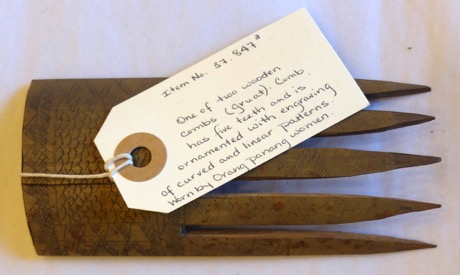 Item No. 37.847ª
One of two wooden
combs (gruat). Comb
has five teeth and is
ornamented with engraving
of curved and linear patterns.
Worn by Orang Panang women.